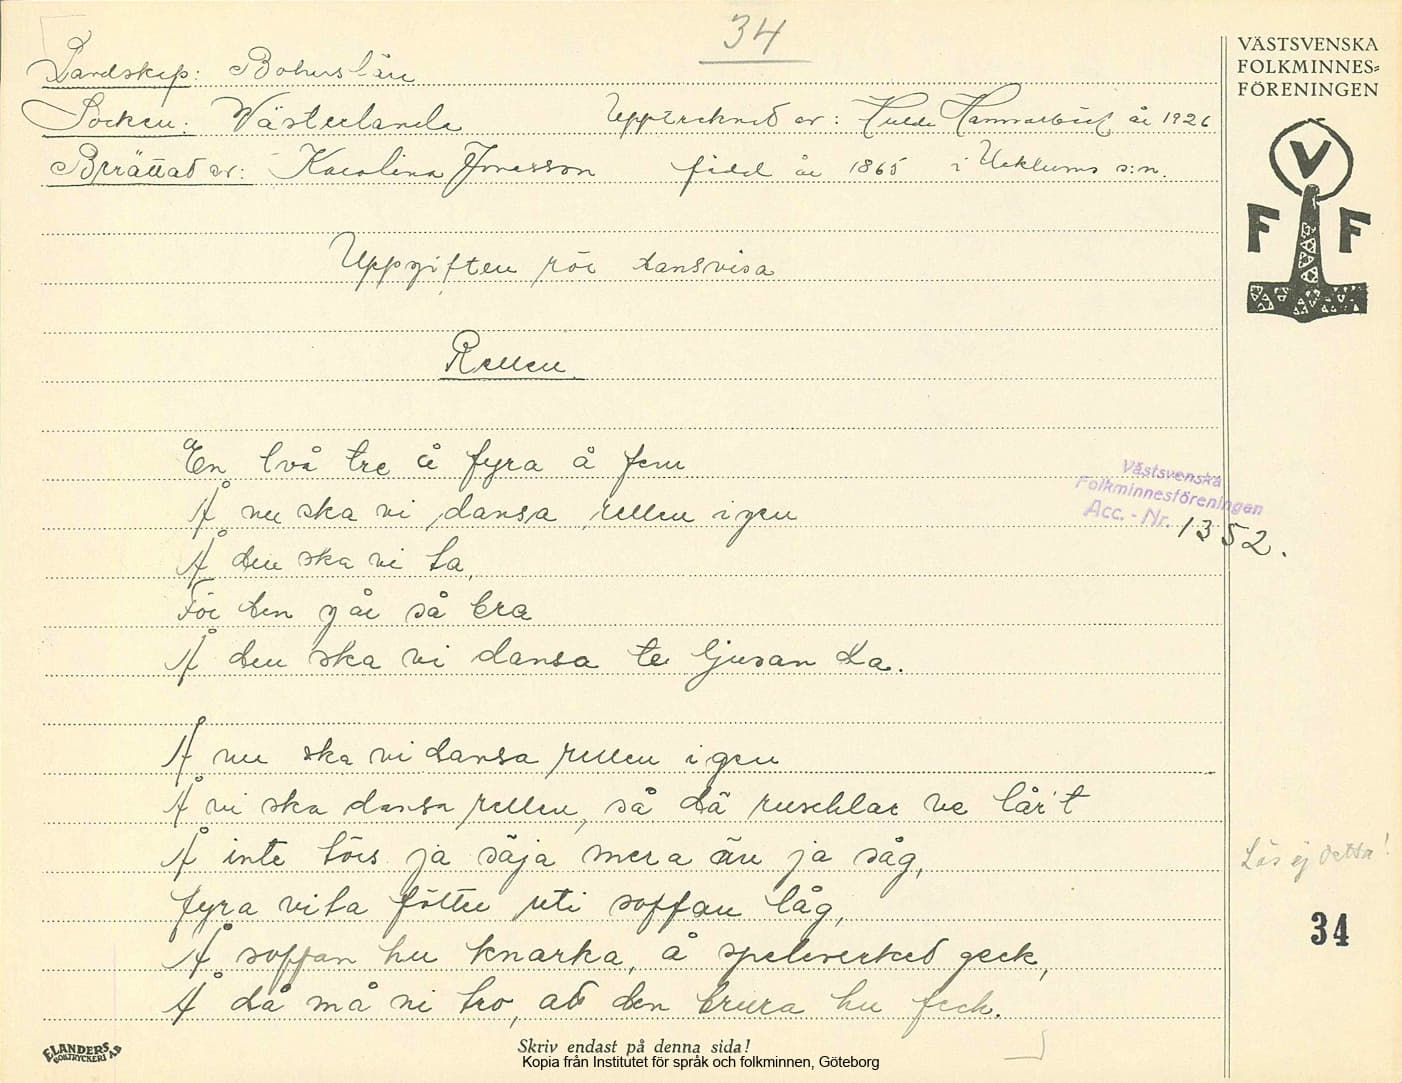 34
Landskap: Bohuslän
Socken: Västerlanda Upptecknad av: Hulda Hammarbäck år 1926
Berättad av: Karolina Jonasson född år 1865 i Ucklums s:n.
Uppgiften rör dansvisa
Rellen
En två tre å fyra å fem
Å nu ska vi dansa rellen igen
Å den ska vi ta,
För den går så bra
Å den ska vi dansa te ljusan da.
Å nu ska vi dansa rellen igen
Å vi ska dansa rellen, så dä ruschlar ve lår't
Å inte törs ja säja mera än ja såg,
fyra vita fötter uti soffan låg,
Å soffan hu knarka, å spelverked geck,
Å då må ni tro, ad den brura hu feck.
VÄSTSVENSKA
FOLKMINNES=
FÖRENINGEN
V
F F
Västsvenska
Folkminnesföreningen
Acc. - Nr. 1352.
Läs ej detta!
34
ELANDERS
BOKTRYCKERI A.B
Skriv endast på denna sida!
Kopia från Institutet för språk och folkminnen, Göteborg